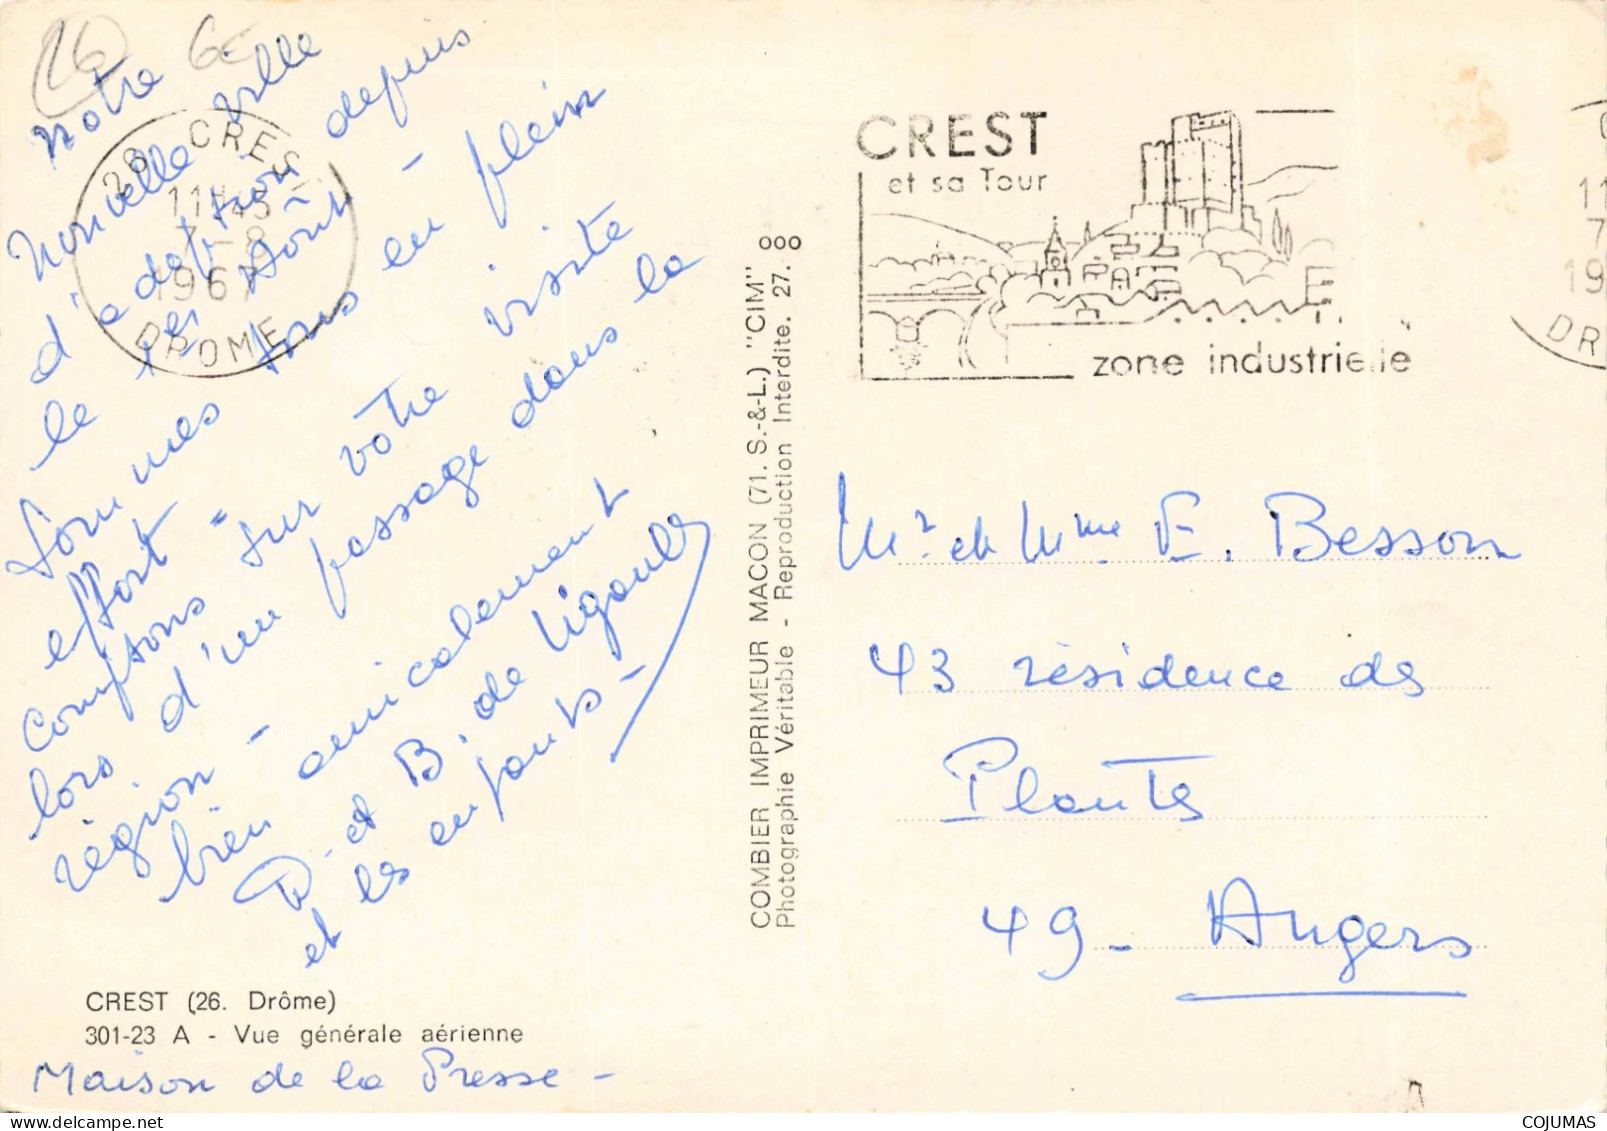 26 6€
Notre
nouvelle ville
d'adoption depuis
le 1er Août -
Sommes tous en plein
effort -
comptons sur votre visite
lors d'un passage dans la
région -
bien amicalement
D. et B. de Vigouls
et les enfants -
26 CREST
11H45
7-8
1967
DROME
CREST (26. Drôme)
301-23 A - Vue générale aérienne
Maison de la Presse -
COMBIER IMPRIMEUR MACON (71. S.-&-L.) "CIM"
Photographie Véritable - Reproduction Interdite. 27. 000
CREST
et sa Tour
zone industrielle
11
7
19
DR
Mr et Mme E. Besson
43 résidence des
Plantes
49 - Angers
COJUMAS